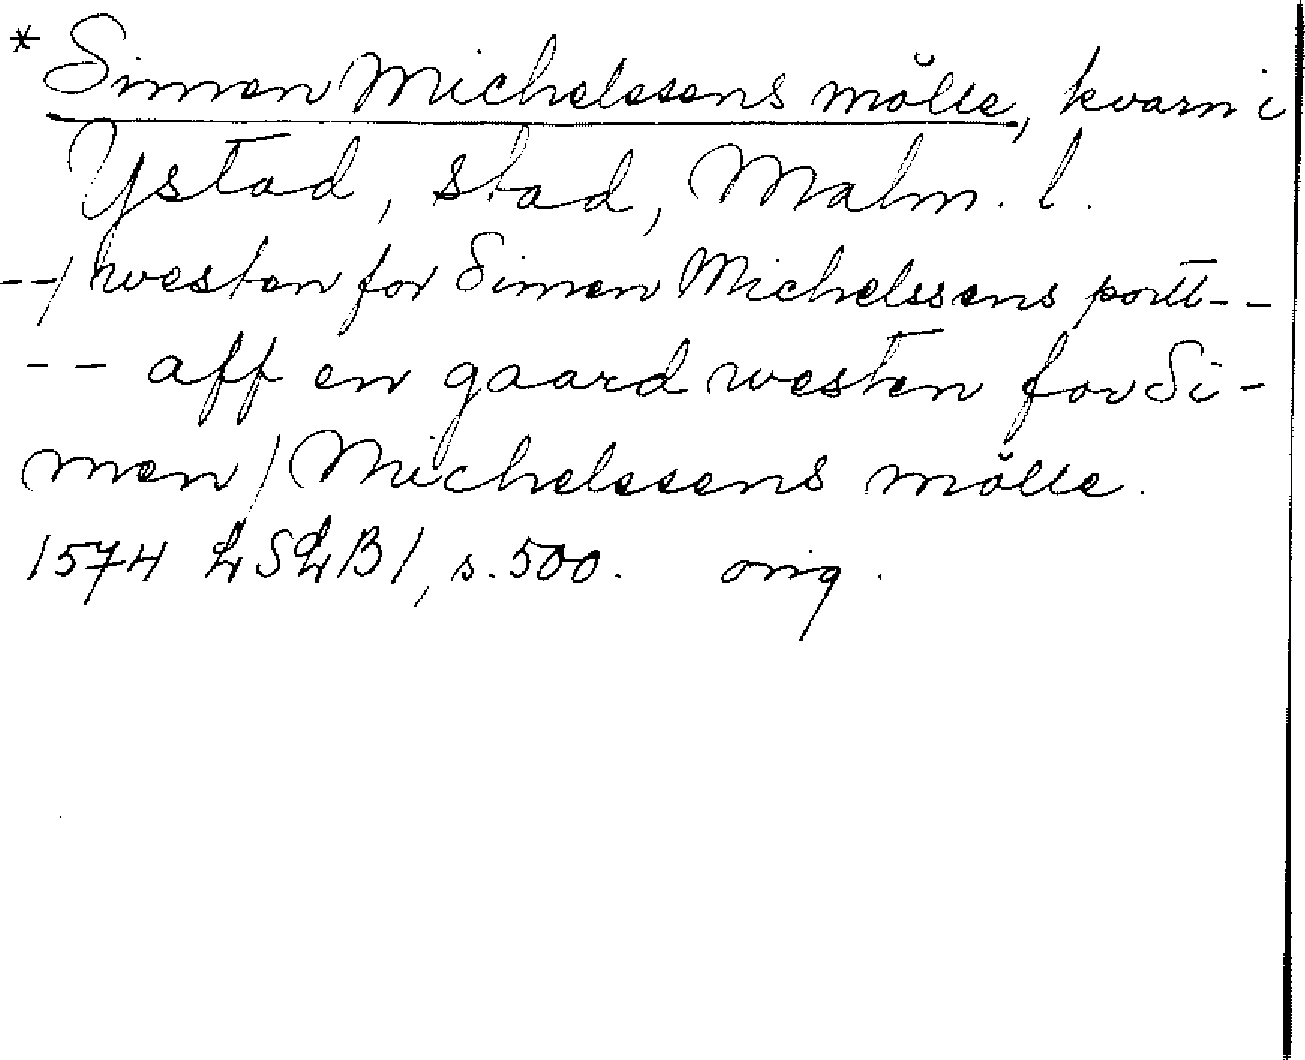 * Simen Michelssens mölle, kvarn i
Ystad, stad, Malm. l.
--/ westen for Simen Michelssens portt--
-- aff en gaard westen for Si-
men / Michelssens mölle.
1574 LSLB 1, s. 500. orig.